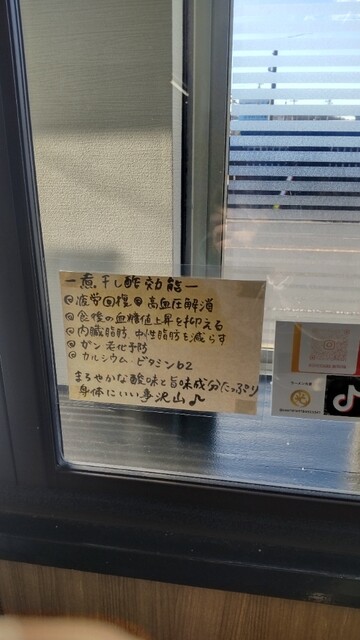 ー煮干し酢効能ー
@疲労回復@高血圧解消
@食後の血糖値上昇を抑える
@内臓脂肪 中性脂肪を減らす
@ガン 老化予防
@カルシウム ビタミンb2
まろやかな酸味と旨味成分たっぷり
身体にいい事沢山♪